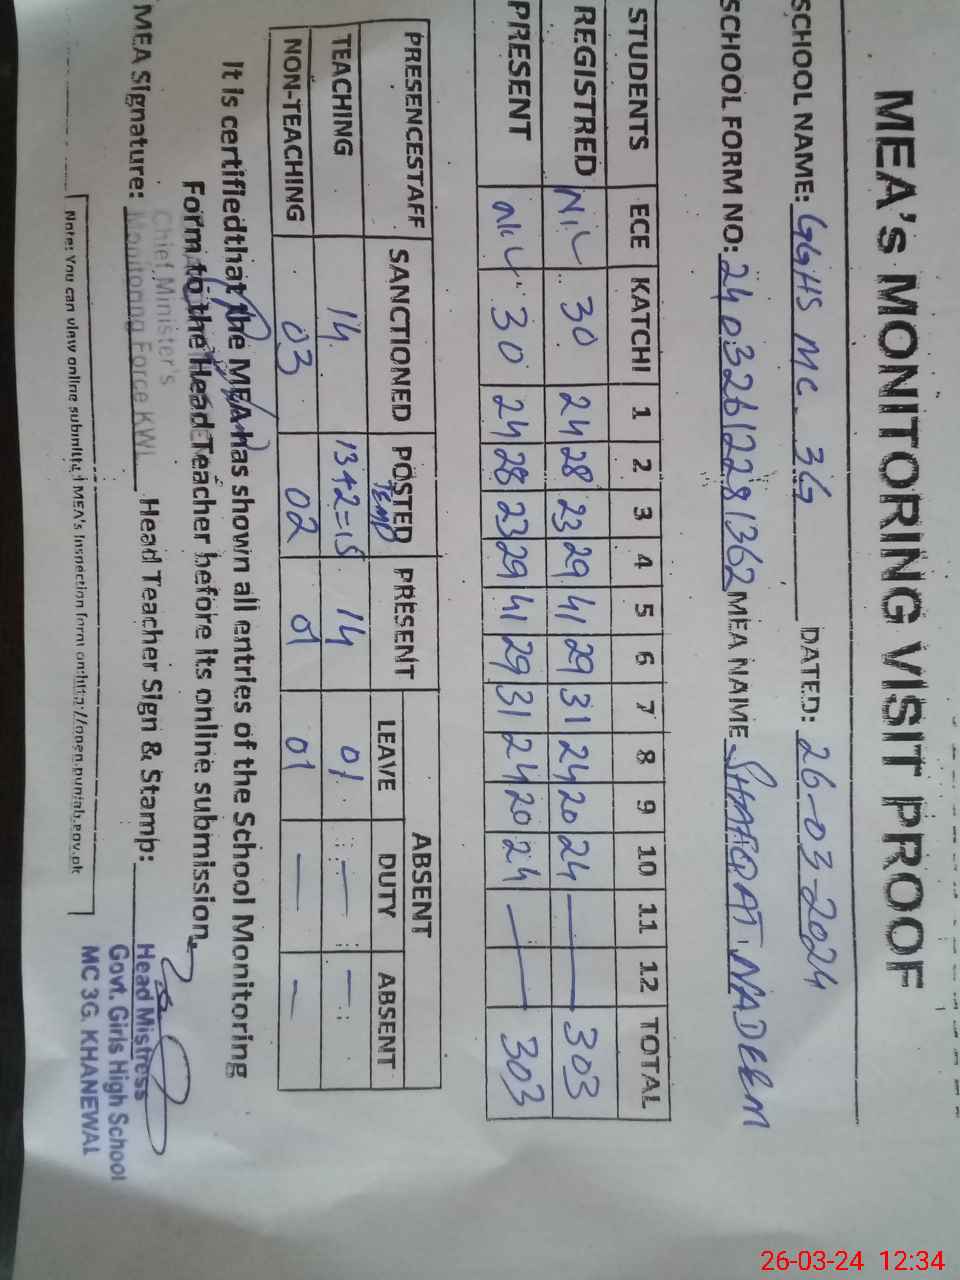 MEA's MONITORING VISIT PROOF
SCHOOL NAME: GGHS MC. 3G DATED: 26-03-2024
SCHOOL FORM NO: 24032612281362 MEA NAME SHAFQAT NADEEM
STUDENTS ECE KATCHI 1 2 3 4 5 6 7 8 9 10 11 12 TOTAL
REGISTRED NiL 30 24 28 23 29 41 29 31 24 20 24 — — 303
PRESENT NIL 30 24 28 23 29 41 29 31 24 20 24 — — 303
PRESENCESTAFF SANCTIONED POSTED PRESENT ABSENT
TEMP LEAVE DUTY ABSENT
TEACHING 14 13+2=15 14 01 — —
NON-TEACHING 03 02 01 01 — —
It is certifiedthat the MEA has shown all entries of the School Monitoring
Form to the Head Teacher before its online submission.
Chief Minister's
Monitoring Force KWL
MEA Signature: Head Teacher Sign & Stamp:
Head Mistress
Govt. Girls High School
MC 3G. KHANEWAL
Note: You can view online submitted MEA's Inspection form on:http://open.punjab.gov.pk
26-03-24 12:34